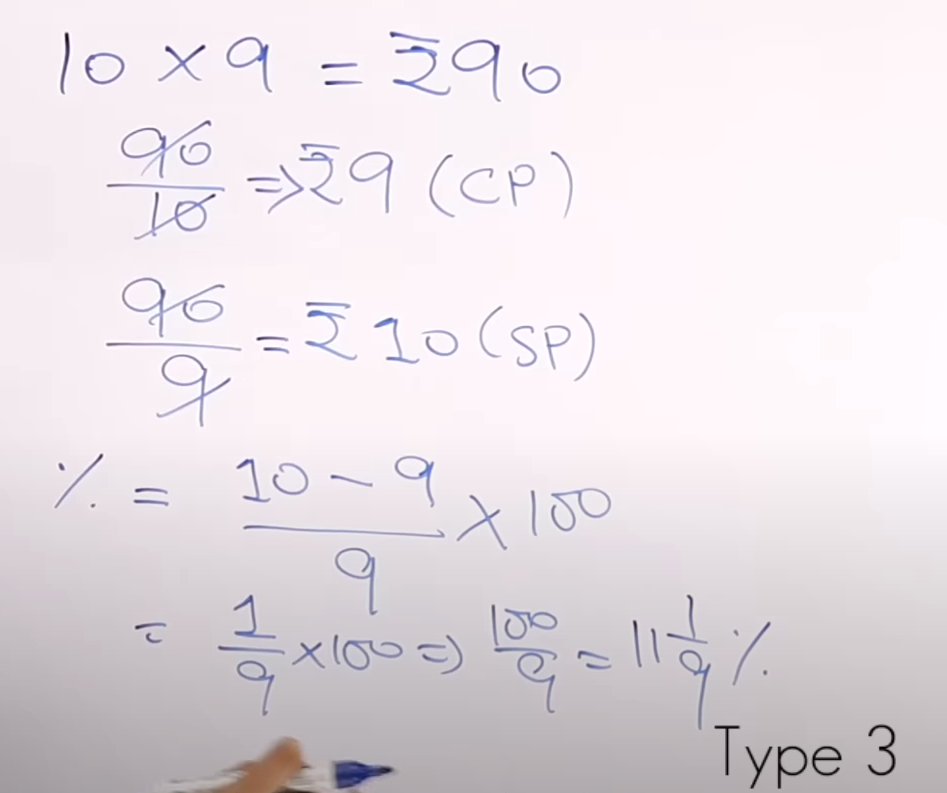 10 × 9 = ₹90
90/10 => ₹9 (CP)
90/9 = ₹10 (SP)
% = (10 - 9)/9 × 100
= 1/9 × 100 => 100/9 = 11 1/9 %
Type 3